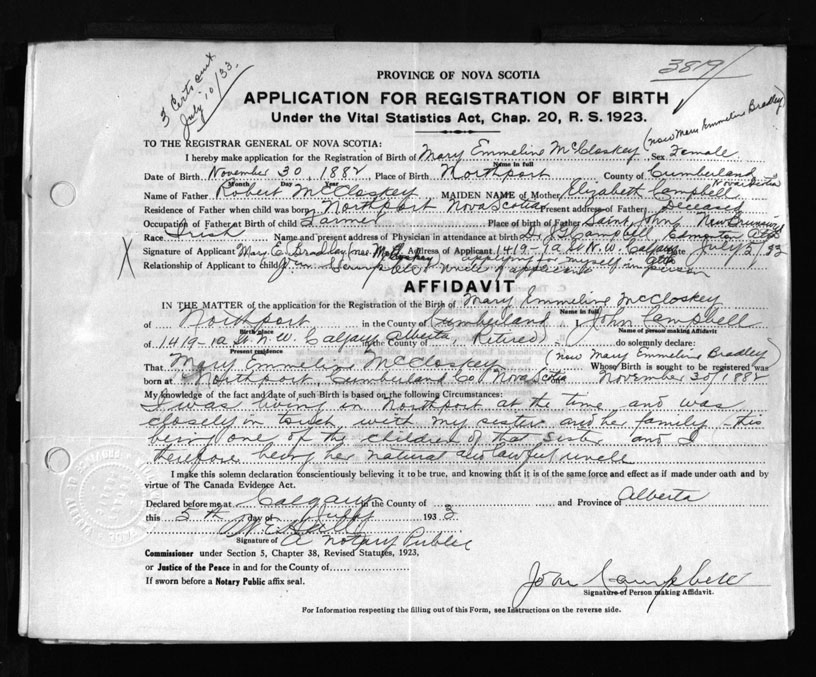 3 Certs sent
July 10/33.
3819
PROVINCE OF NOVA SCOTIA
APPLICATION FOR REGISTRATION OF BIRTH
Under the Vital Statistics Act, Chap. 20, R. S. 1923.
(now Mary Emmeline Bradley)
TO THE REGISTRAR GENERAL OF NOVA SCOTIA:
I hereby make application for the Registration of Birth of Mary Emmeline McCloskey Sex Female
Name in full
Date of Birth November 30, 1882 Place of Birth Northport County of Cumberland
Month Day Year Nova Scotia
Name of Father Robert McCloskey MAIDEN NAME of Mother Elizabeth Campbell
Residence of Father when child was born Northport Nova Scotia Present address of Father Deceased
Occupation of Father at Birth of child Farmer Place of birth of Father Saint John, New Brunswick
Race Irish Name and present address of Physician in attendance at birth Dr. Campbell Edmonton Alta
Signature of Applicant Mary E. Bradley (nee McCloskey) Address of Applicant 1419-1a St N.W. Calgary Date July 5/33
Alta
Relationship of Applicant to child Jno. Campbell Uncle of applicant applying for myself in person
AFFIDAVIT
IN THE MATTER of the application for the Registration of the Birth of Mary Emmeline McCloskey
Name in full
of Northport in the County of Cumberland, I, John Campbell
Birth place Name of person making Affidavit
of 1419-1a St. N.W. Calgary in the County of Alberta, (Retired) do solemnly declare:
Present residence
(now Mary Emmeline Bradley)
That Mary Emmeline McCloskey Whose Birth is sought to be registered was
born at Northport, Cumberland Co Nova Scotia November 30/1882
My knowledge of the fact and date of such Birth is based on the following Circumstances:
I was living in Northport at the time and was
closely in touch with my sister and her family - this
being one of the children of that sister and I
therefore being her natural and lawful uncle
I make this solemn declaration conscientiously believing it to be true, and knowing that it is of the same force and effect as if made under oath and by
virtue of The Canada Evidence Act.
Declared before me at Calgary in the County of and Province of Alberta
this 5th day of July 1933
Signature of A Notary Public
Commissioner under Section 5, Chapter 38, Revised Statutes, 1923,
or Justice of the Peace in and for the County of
If sworn before a Notary Public affix seal.
John Campbell
Signature of Person making Affidavit.
For Information respecting the filling out of this Form, see Instructions on the reverse side.